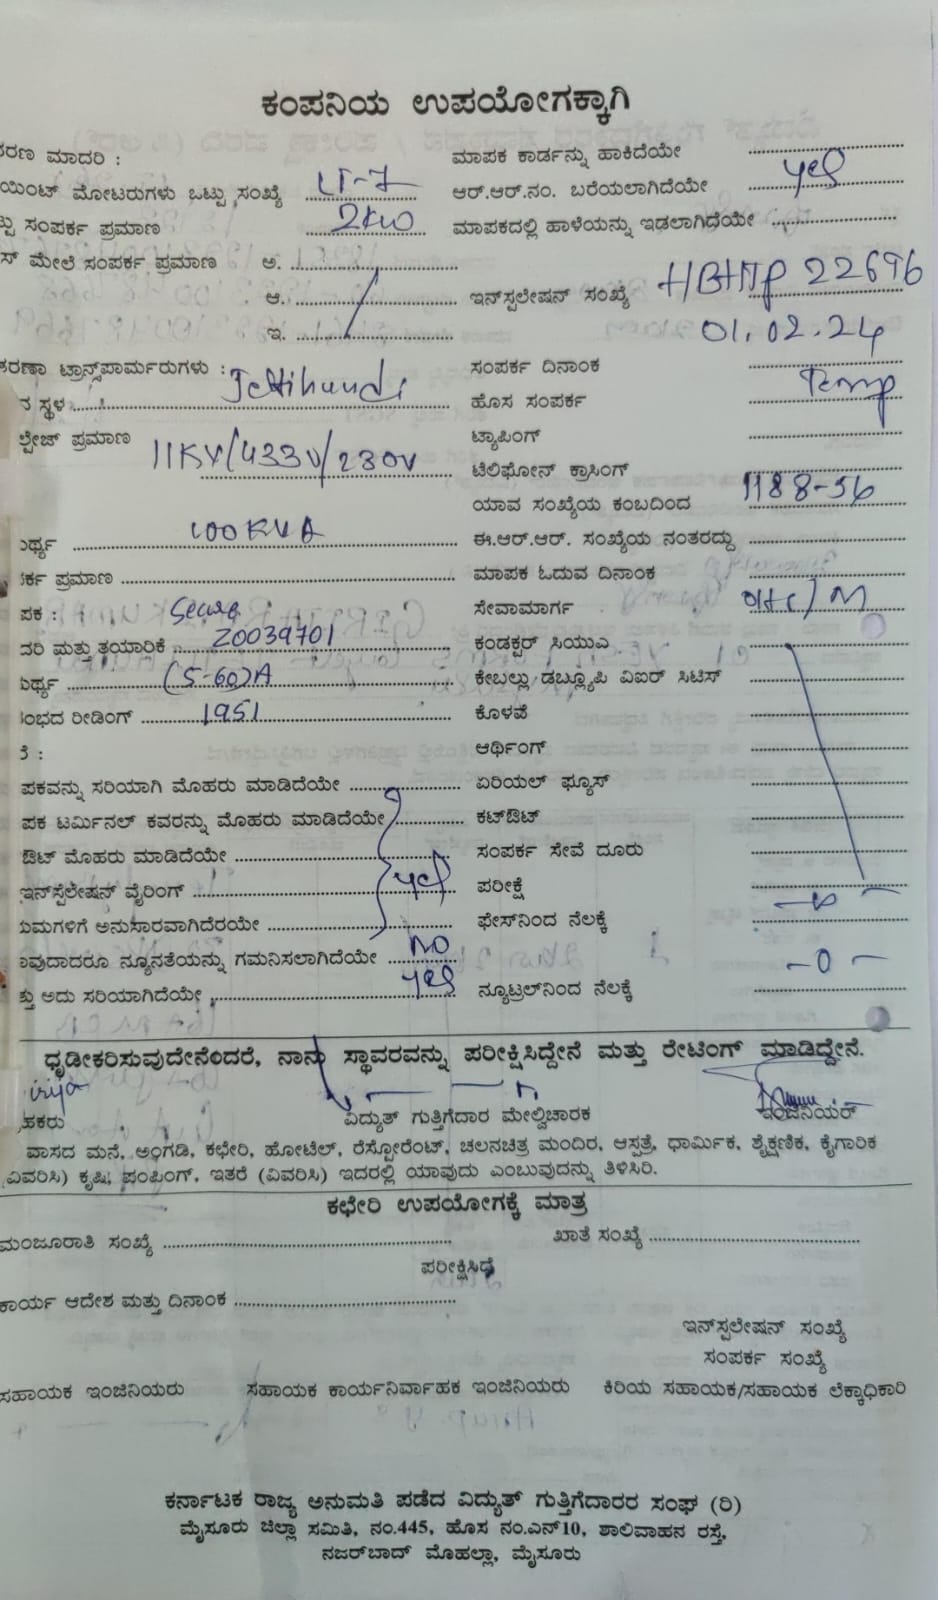 ಕಂಪನಿಯ ಉಪಯೋಗಕ್ಕಾಗಿ
ರಣ ಮಾದರಿ :
ಯಿಂಟ್ ಮೋಟರುಗಳು ಒಟ್ಟು ಸಂಖ್ಯೆ LT-7
ಟ್ಟು ಸಂಪರ್ಕ ಪ್ರಮಾಣ 2KW
ಸ್ ಮೇಲೆ ಸಂಪರ್ಕ ಪ್ರಮಾಣ ಅ.
ಆ.
ಇ.
ಕರಣಾ ಟ್ರಾನ್ಸ್‌ಪಾರ್ಮರುಗಳು :
ನ ಸ್ಥಳ Jettihundi
ಲ್ಟೇಜ್ ಪ್ರಮಾಣ 11KV/433V/230V
ರ್ಥ್ಯ 100KVA
ರ್ಕ ಪ್ರಮಾಣ
ಪಕ : Secure
ದರಿ ಮತ್ತು ತಯಾರಿಕೆ Z0039701
ರ್ಥ್ಯ (5-60)A
ಂಭದ ರೀಡಿಂಗ್ 1951
ಪಕವನ್ನು ಸರಿಯಾಗಿ ಮೊಹರು ಮಾಡಿದೆಯೇ
ಪಕ ಟರ್ಮಿನಲ್ ಕವರನ್ನು ಮೊಹರು ಮಾಡಿದೆಯೇ
ಔಟ್ ಮೊಹರು ಮಾಡಿದೆಯೇ
ಇನ್‌ಸ್ಪಲೇಷನ್ ವೈರಿಂಗ್ yes
ಯಮಗಳಿಗೆ ಅನುಸಾರವಾಗಿದೆರಯೇ
ಾವುದಾದರೂ ನ್ಯೂನತೆಯನ್ನು ಗಮನಿಸಲಾಗಿದೆಯೇ NO
ತ್ತು ಅದು ಸರಿಯಾಗಿದೆಯೇ yes
ಮಾಪಕ ಕಾರ್ಡನ್ನು ಹಾಕಿದೆಯೇ
ಆರ್.ಆರ್.ನಂ. ಬರೆಯಲಾಗಿದೆಯೇ yes
ಮಾಪಕದಲ್ಲಿ ಹಾಳೆಯನ್ನು ಇಡಲಾಗಿದೆಯೇ
ಇನ್‌ಸ್ಪಲೇಷನ್ ಸಂಖ್ಯೆ HBHTP 22696
01.02.24
ಸಂಪರ್ಕ ದಿನಾಂಕ
ಹೊಸ ಸಂಪರ್ಕ Temp
ಟ್ಯಾಪಿಂಗ್
ಟೆಲಿಫೋನ್ ಕ್ರಾಸಿಂಗ್
ಯಾವ ಸಂಖ್ಯೆಯ ಕಂಬದಿಂದ 1188-56
ಈ.ಆರ್.ಆರ್. ಸಂಖ್ಯೆಯ ನಂತರದ್ದು
ಮಾಪಕ ಓದುವ ದಿನಾಂಕ
ಸೇವಾಮಾರ್ಗ OHC/M
ಕಂಡಕ್ಟರ್ ಸಿಯುಎ
ಕೇಬಲ್ಲು ಡಬ್ಲ್ಯೂಪಿ ವಿಐರ್ ಸಿಟಿಸ್
ಕೊಳವೆ
ಆರ್ಥಿಂಗ್
ಏರಿಯಲ್ ಫ್ಯೂಸ್
ಕಟ್‌ಔಟ್
ಸಂಪರ್ಕ ಸೇವೆ ದೂರು
ಪರೀಕ್ಷೆ
ಫೇಸ್‌ನಿಂದ ನೆಲಕ್ಕೆ
ನ್ಯೂಟ್ರಲ್‌ನಿಂದ ನೆಲಕ್ಕೆ -0-
ಧೃಡೀಕರಿಸುವುದೇನೆಂದರೆ, ನಾನು ಸ್ಥಾವರವನ್ನು ಪರೀಕ್ಷಿಸಿದ್ದೇನೆ ಮತ್ತು ರೇಟಿಂಗ್ ಮಾಡಿದ್ದೇನೆ.
ಹಕರು ವಿದ್ಯುತ್ ಗುತ್ತಿಗೆದಾರ ಮೇಲ್ವಿಚಾರಕ ಇಂಜಿನಿಯರ್
ವಾಸದ ಮನೆ, ಅಂಗಡಿ, ಕಛೇರಿ, ಹೋಟೆಲ್, ರೆಸ್ಟೋರೆಂಟ್, ಚಲನಚಿತ್ರ ಮಂದಿರ, ಆಸ್ಪತ್ರೆ, ಧಾರ್ಮಿಕ, ಶೈಕ್ಷಣಿಕ, ಕೈಗಾರಿಕ
(ವಿವರಿಸಿ) ಕೃಷಿ, ಪಂಪಿಂಗ್, ಇತರೆ (ವಿವರಿಸಿ) ಇದರಲ್ಲಿ ಯಾವುದು ಎಂಬುವುದನ್ನು ತಿಳಿಸಿರಿ.
ಕಛೇರಿ ಉಪಯೋಗಕ್ಕೆ ಮಾತ್ರ
ಮಂಜೂರಾತಿ ಸಂಖ್ಯೆ ಖಾತೆ ಸಂಖ್ಯೆ
ಪರೀಕ್ಷಿಸಿದೆ
ಕಾರ್ಯ ಆದೇಶ ಮತ್ತು ದಿನಾಂಕ
ಇನ್‌ಸ್ಪಲೇಷನ್ ಸಂಖ್ಯೆ
ಸಂಪರ್ಕ ಸಂಖ್ಯೆ
ಸಹಾಯಕ ಇಂಜಿನಿಯರು ಸಹಾಯಕ ಕಾರ್ಯನಿರ್ವಾಹಕ ಇಂಜಿನಿಯರು ಕಿರಿಯ ಸಹಾಯಕ/ಸಹಾಯಕ ಲೆಕ್ಕಾಧಿಕಾರಿ
ಕರ್ನಾಟಕ ರಾಜ್ಯ ಅನುಮತಿ ಪಡೆದ ವಿದ್ಯುತ್ ಗುತ್ತಿಗೆದಾರರ ಸಂಘ (ರಿ)
ಮೈಸೂರು ಜಿಲ್ಲಾ ಸಮಿತಿ, ನಂ.445, ಹೊಸ ನಂ.ಎನ್10, ಶಾಲಿವಾಹನ ರಸ್ತೆ,
ನಜರ್‌ಬಾದ್ ಮೊಹಲ್ಲಾ, ಮೈಸೂರು